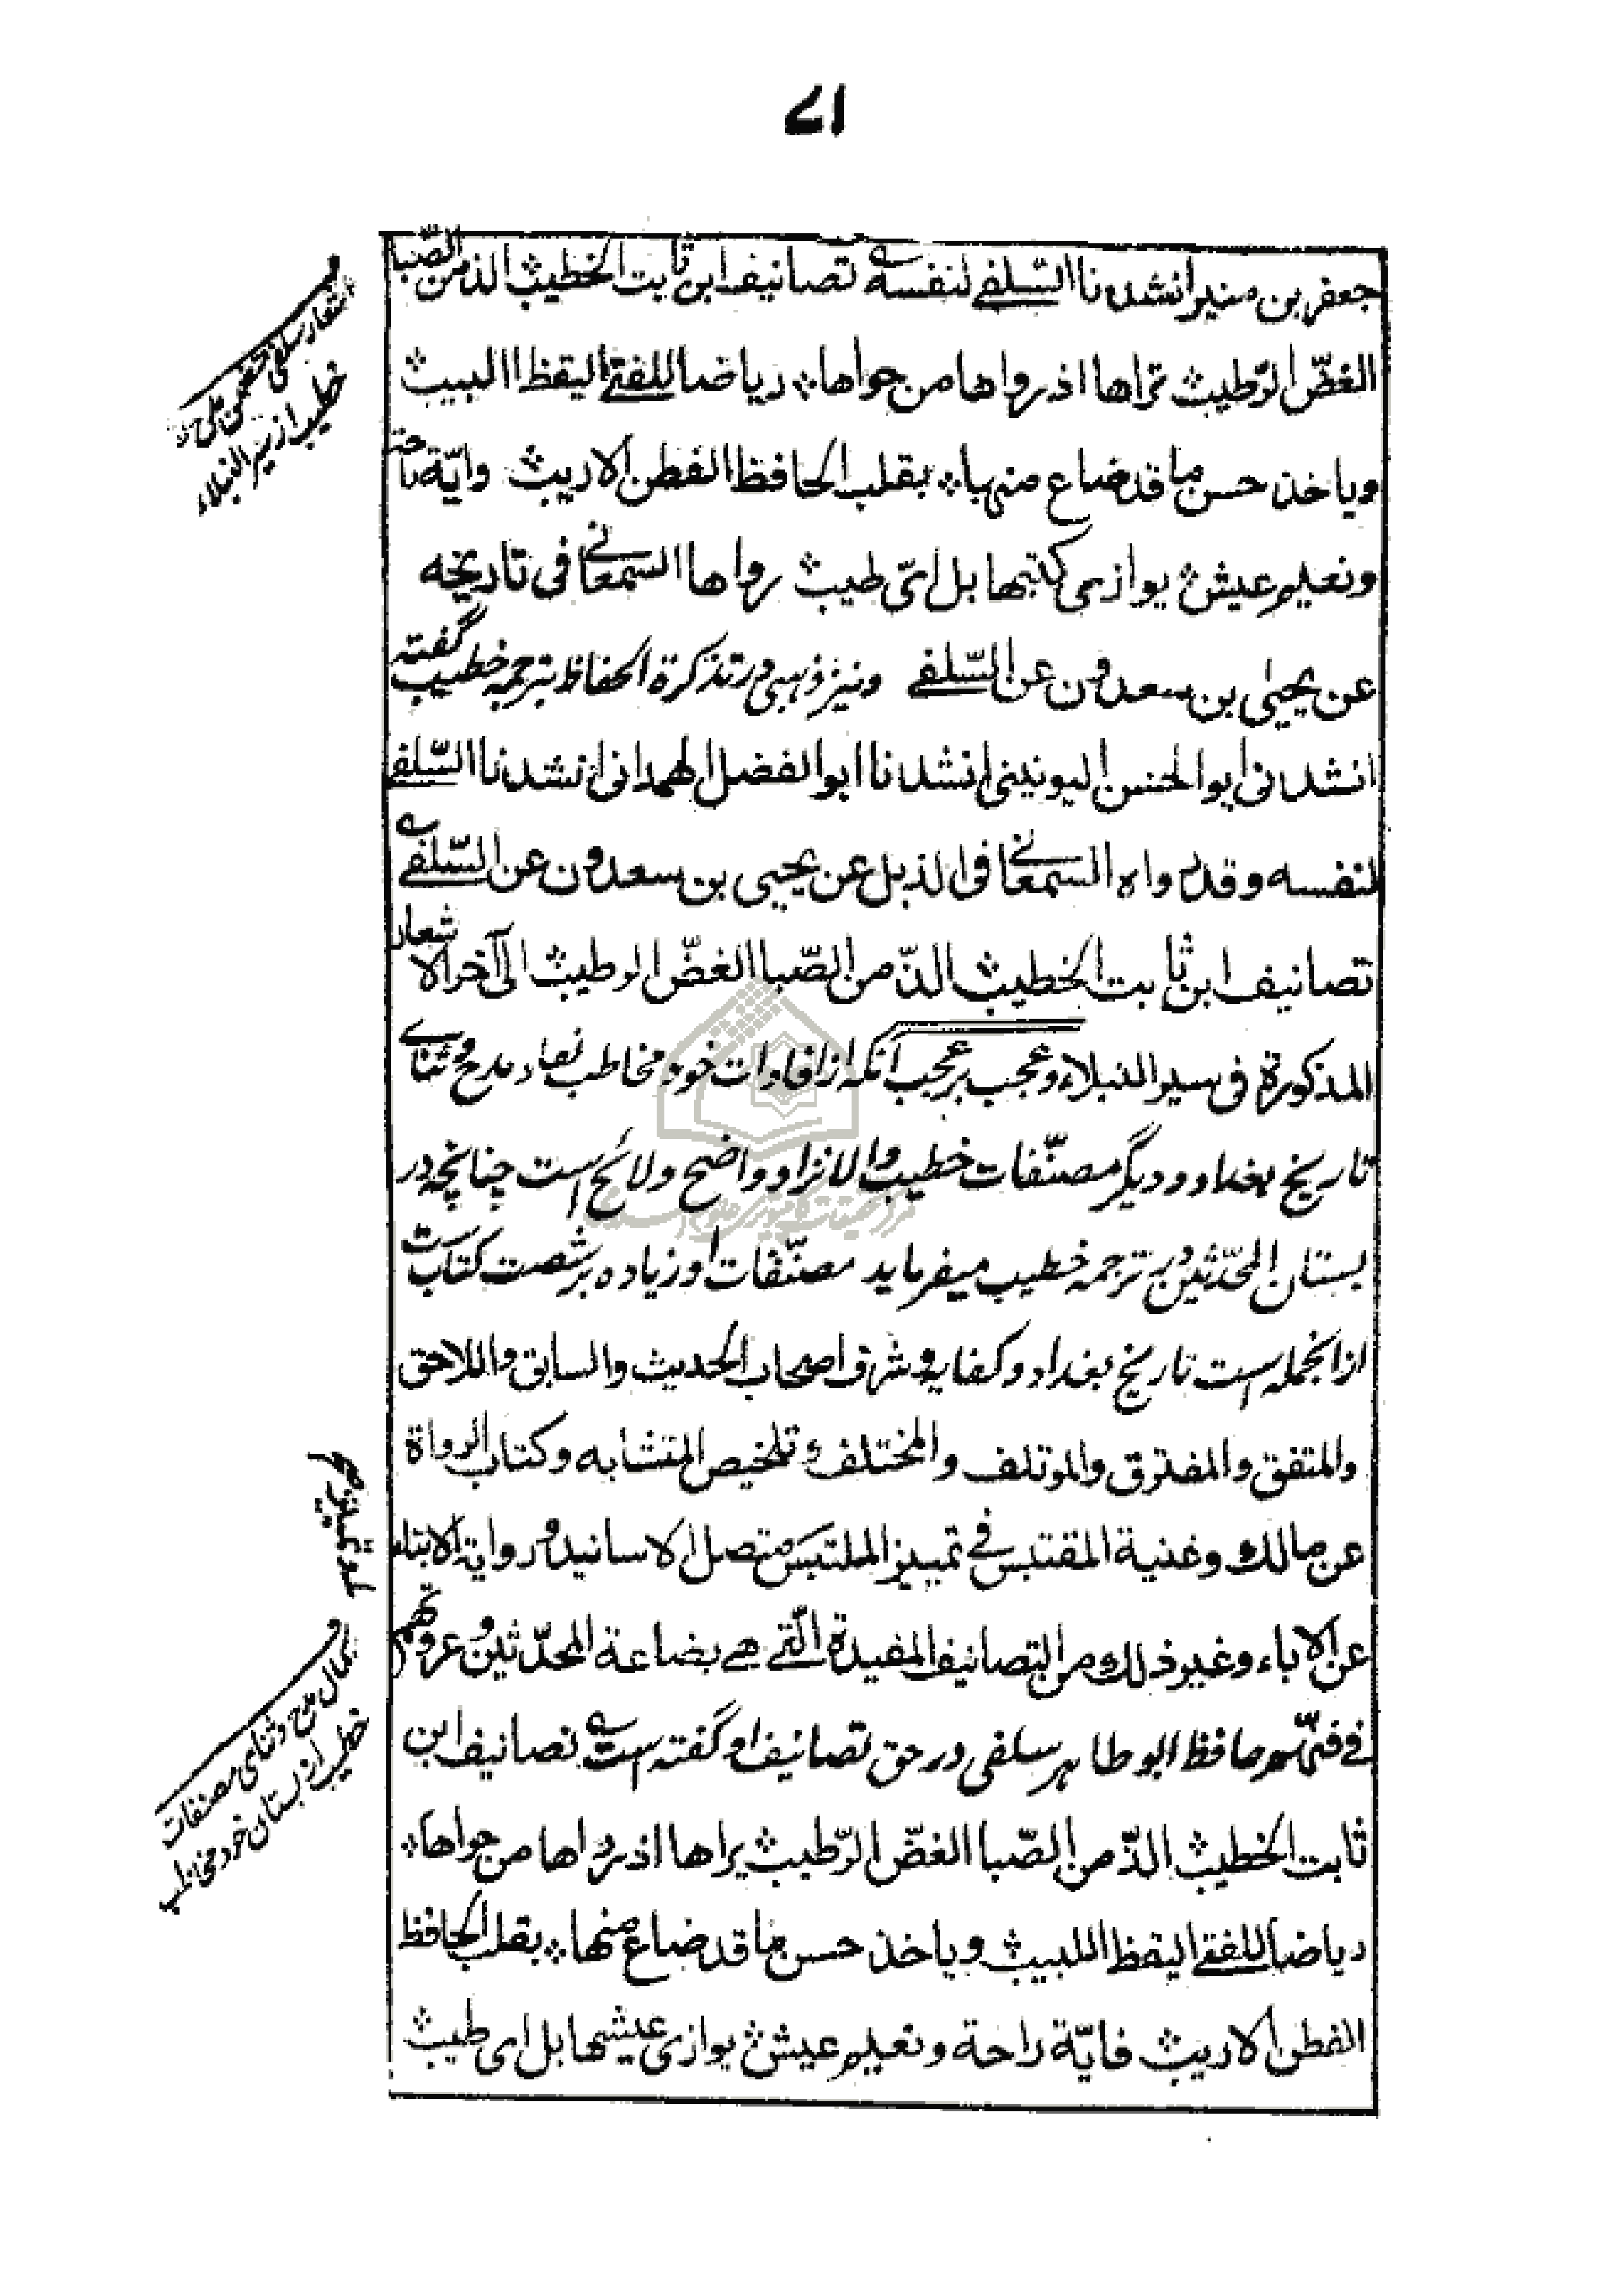 ٧١
جعفر بن منير انشدنا السّلفي لنفسه تصانيف ابن ثابت الخطيب الذ من الصّبا
الغضّ الرّطيب تراها اذ رواها من حواها رياضا للفتى اليقظ اللبيب
وياخذ حسن ما قد ضاع منها بقلب الحافظ الفطن الاريب وايّة راحة
ونعيم عيش يوازى كتبها بل اىّ طيب رواها السمعانى فى تاريخه
عن يحيىٰ بن سعدون عن السّلفي ونيز ذهبى در تذكرة الحفاظ بترجمه خطيب گفته
انشدنى ابو الحسين اليونينى انشدنا ابو الفضل الهمدانى انشدنا السّلفي
لنفسه وقد رواه السمعانى فى الذيل عن يحيى بن سعدون عن السّلفي
تصانيف ابن ثابت الخطيب الذّ من الصّبا الغضّ الرطيب الى آخر الاشعار
المذكورة فى سير النبلاء وعجب بر عجب آنكه از افادات خود مخاطب نقاد مدح و ثناى
تاريخ بغداد و ديگر مصنّفات خطيب والا نژاد واضح و لائح است چنانچه در
بستان المحدّثين در ترجمه خطيب ميفرمايد مصنّفات او زياده بر شصت كتابست
از انجمله است تاريخ بغداد و كفايه و شرف اصحاب الحديث والسابق واللاحق
والمتفق والمفترق والموتلف والمختلف و تلخيص المتشابه وكتاب الرواة
عن مالك وغنية المقتبس فى تمييز الملتبس و متصل الاسانيد و رواية الابناء
عن الاباء وغير ذلك من التصانيف المفيدة الّتى هى بضاعة المحدّثين وعروتهم
فى فنّهم حافظ ابو طاهر سلفى در حق تصانيف او گفته است تصانيف ابن
ثابت الخطيب الذّ من الصّبا الغضّ الرّطيب يراها اذ رواها من حواها
رياضا للفتى اليقظ اللبيب وياخذ حسن ما قد ضاع منها بقلب الحافظ
الفطن الاريب فايّة راحة ونعيم عيش يوازى عيشها بل اى طيب
اشعار سلفى متضمن مدح
خطيب از سير النبلاء
كمال مدح و ثناى مصنفات
خطيب از بستان خود مخاطب